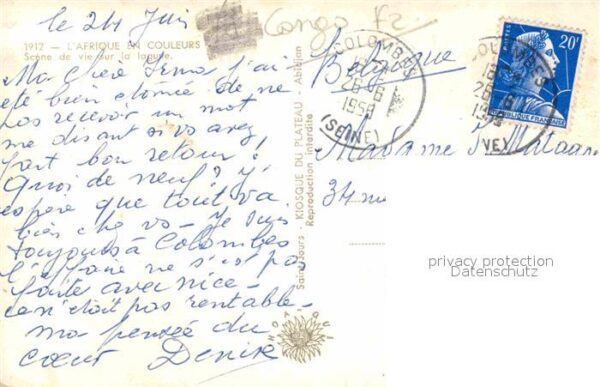 le 24 Juin
Congo F2
1912 - L'AFRIQUE EN COULEURS
Scène de vie sur la lagune.
Ma chère Irma j'ai
été bien étonnée de ne
pas recevoir un mot
me disant si vs avez
fait bon retour?
Quoi de neuf? J'
espère que tout va
bien chez vs - Je suis
toujours à Colombes
l'affaire ne s'est pas
faite avec nice -
ce n'était pas rentable -
ma pensée du
coeur Denise
Saint-Jours - KIOSQUE DU PLATEAU - Abidjan
Reproduction interdite
HOTIQUI
COLOMBES
26-6
1958
(SEINE)
COLOMBES
26-6
POSTES 20F
REPUBLIQUE FRANÇAISE
Belgique
Madame
34 rue
privacy protection
Datenschutz